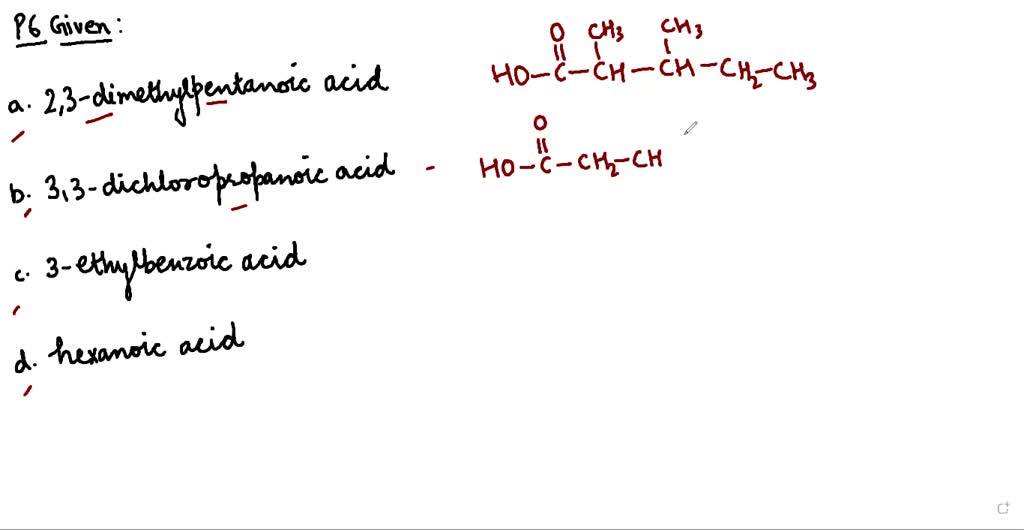 P6 Given:
a. 2,3-dimethylpentanoic acid
O CH3 CH3
HO-C-CH-CH-CH2-CH3
b. 3,3-dichloropropanoic acid -
O
HO-C-CH2-CH
c. 3-ethylbenzoic acid
d. hexanoic acid